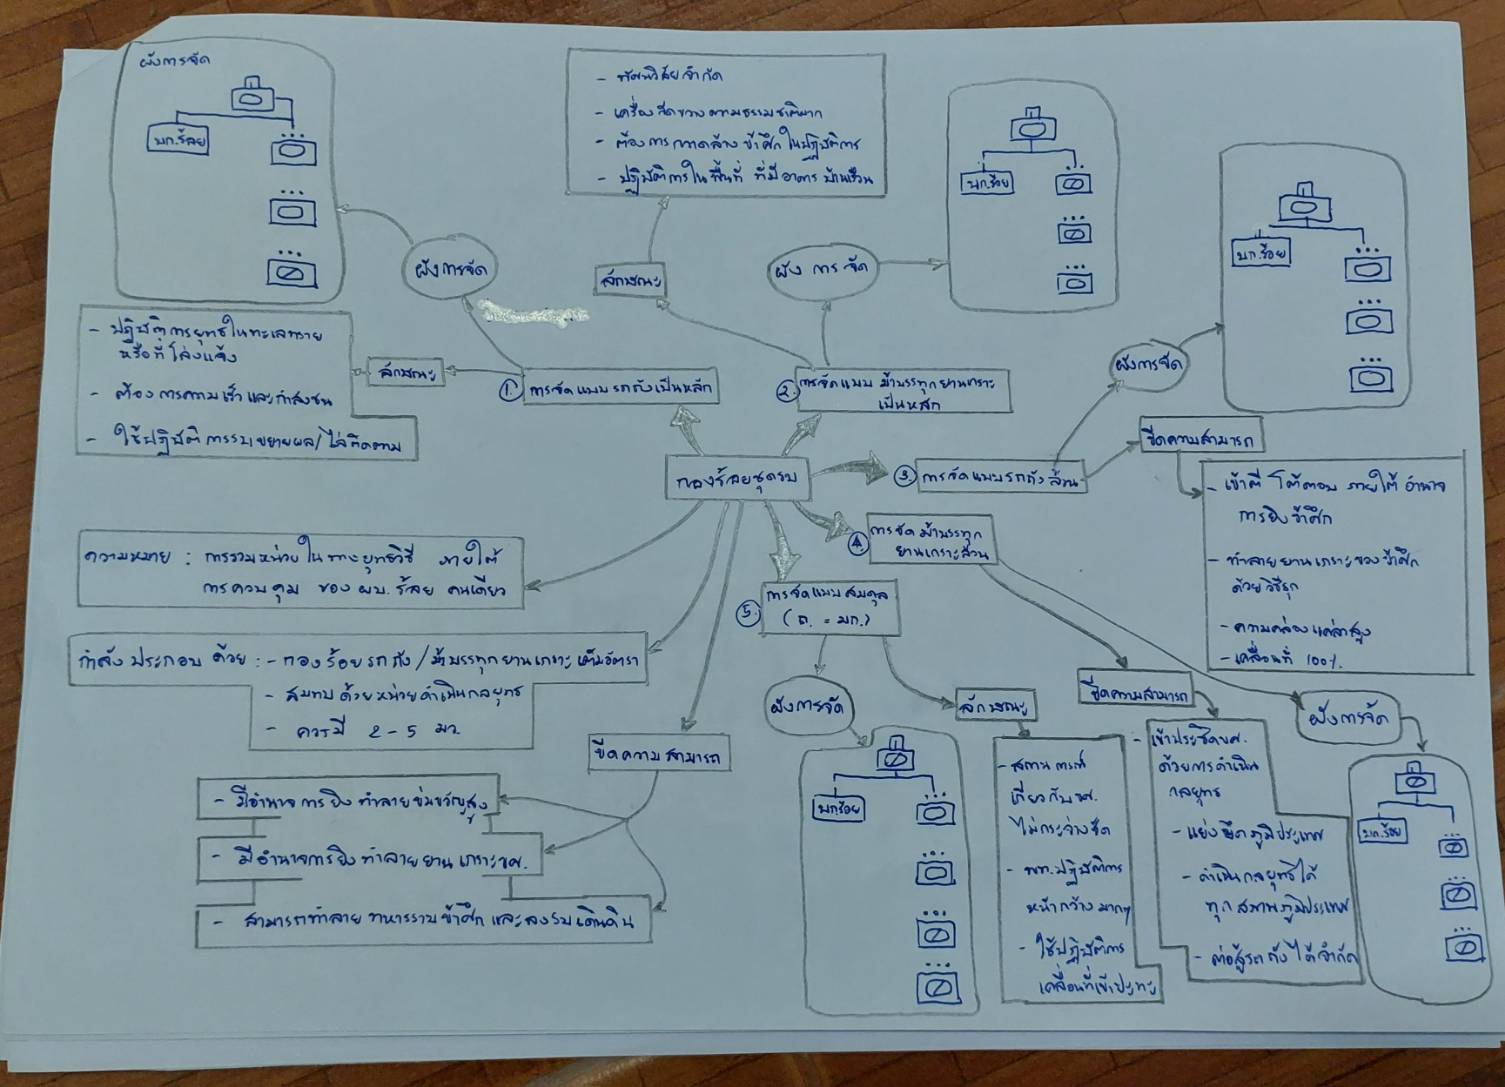 ผังการจัด
บก.ร้อย
- ทัศนวิสัยจำกัด
- เครื่องกีดขวางตามธรรมชาติมาก
- ต้องการกวาดล้างข้าศึกในปฏิบัติการ
- ปฏิบัติการในพื้นที่ ที่มีอาคาร บ้านเรือน
บก.ร้อย
บก.ร้อย
ผังการจัด
ลักษณะ
ผัง การ จัด
- ปฏิบัติการยุทธในทะเลทราย
หรือที่โล่งแจ้ง
- ต้องการความเร็วและกำลังชน
- ใช้ปฏิบัติการรบขยายผล/ไล่ติดตาม
ลักษณะ
ผังการจัด
1. การจัดแบบรถถังเป็นหลัก
2. การจัดแบบ ม้าบรรทุกยานเกราะ
เป็นหลัก
ขีดความสามารถ
กองร้อยชุดรบ
3. การจัดแบบรถถังล้วน
- เข้าตี โต้ตอบ ภายใต้ อำนาจ
การยิงข้าศึก
- ทำลายยานเกราะของข้าศึก
ด้วยวิธีรุก
- ความคล่องแคล่วสูง
- เคลื่อนที่ 100%
4. การจัดม้าบรรทุก
ยานเกราะล้วน
ความหมาย : การรวมหน่วยในทางยุทธวิธี ภายใต้
การควบคุม ของ ผบ.ร้อย คนเดียว
5. การจัดแบบสมดุล
( ถ. = มก.)
กำลังประกอบ ด้วย : - กองร้อยรถถัง/ม้าบรรทุกยานเกราะเต็มอัตรา
- สมทบด้วยหน่วยดำเนินกลยุทธ
- ควรมี 2 - 5 มว.
ขีดความสามารถ
- มีอำนาจการยิงทำลายข่มขวัญสูง
- มีอำนาจการยิงทำลายยานเกราะขศ.
- สามารถทำลายทหารราบข้าศึกและลงรบเดินดิน
ผังการจัด
ลักษณะ
บก.ร้อย
- สถานการณ์
เกี่ยวกับขศ.
ไม่กระจ่างชัด
- พท.ปฏิบัติการ
หน้ากว้างมากๆ
- ใช้ปฏิบัติการ
เคลื่อนที่เข้าปะทะ
ขีดความสามารถ
- เข้าประชิดขศ.
ด้วยการดำเนิน
กลยุทธ
- แย่งยึดภูมิประเทศ
- ดำเนินกลยุทธได้
ทุกสภาพภูมิประเทศ
- ต่อสู้รถถังได้จำกัด
ผังการจัด
บก.ร้อย